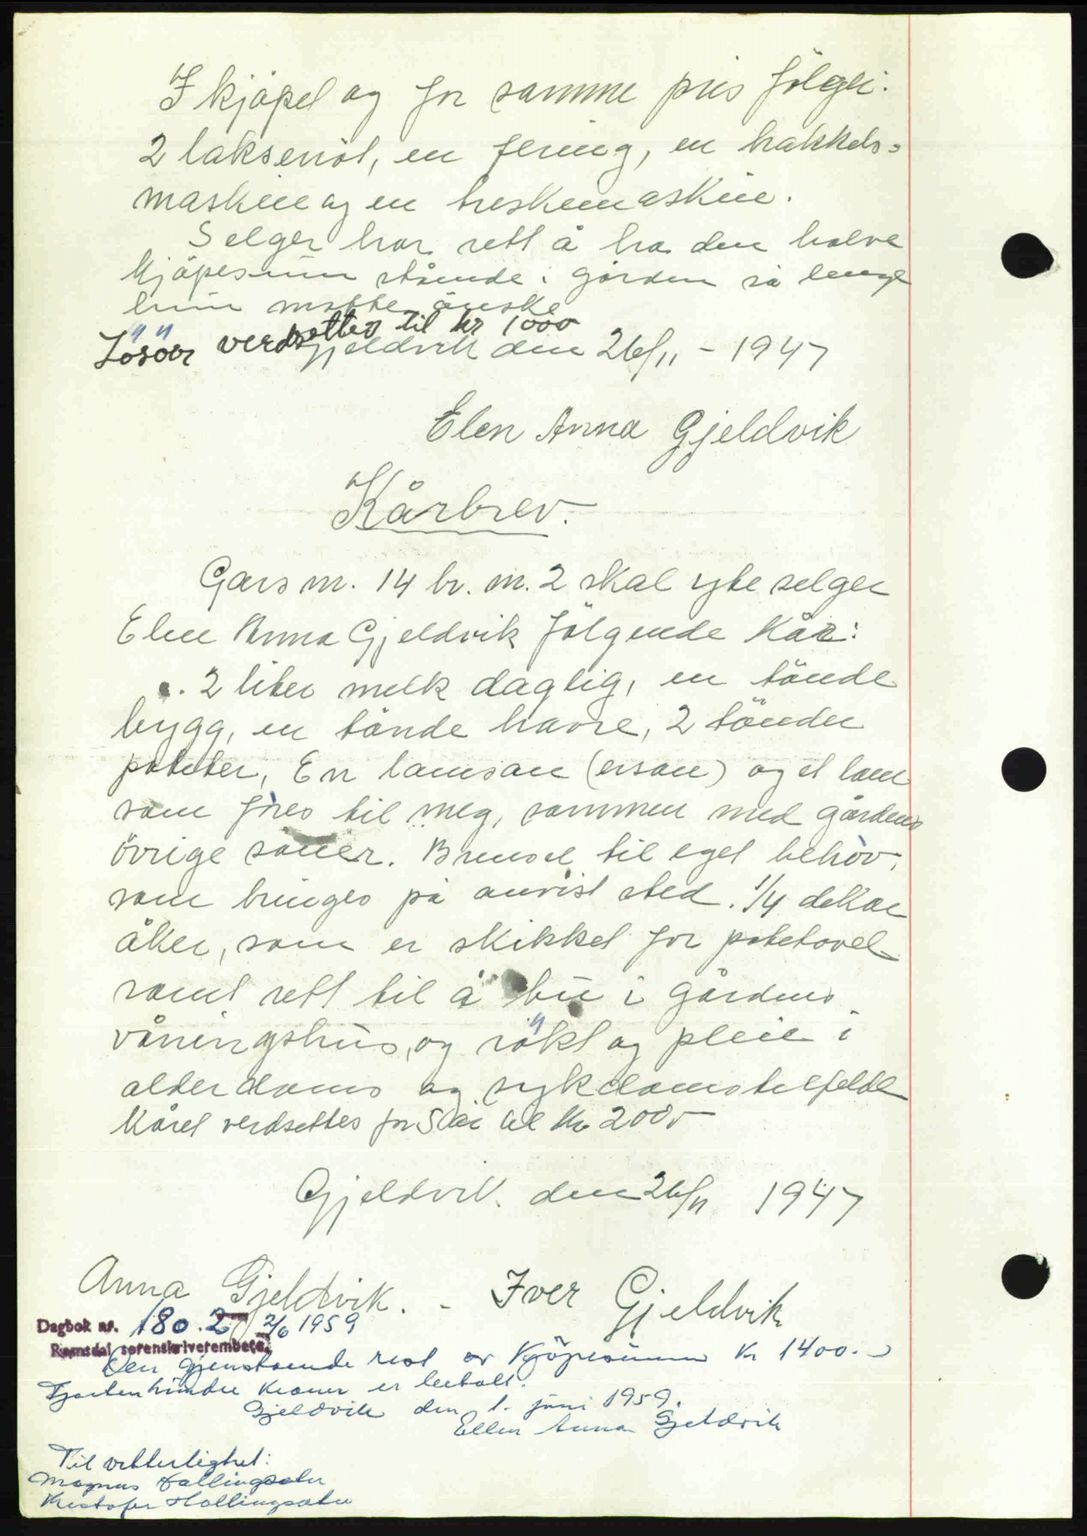 I kjöpet og for samme pris fölger:
2 laksenöt, en fering, en hakkels-
maskin og en treskemaskin.
Selger har rett å ha den halve
kjöpesum stående i gården så lenge
hun måtte önske
Lösöre verdsettes til kr 1000
Gjeldvik den 26/11 - 1947
Elen Anna Gjeldvik
Kårbrev.
Gårs nr. 14 br. nr. 2 skal yte selger
Elen Anna Gjeldvik fölgende kår:
2 liter melk daglig, en tönde
bygg, en tönde havre, 2 tönder
poteter, En lamsau (ensau) og et lam
som fores til meg, sammen med gårdens
övrige sauer. Brensel til eget behov,
som bringes på anvist sted. 1/4 dekar
åker, som er skikket for potetavel
samt rett til å bu i gårdens
våningshus, og rökt og pleie i
alderdoms og sykdomstilfelde
Kåret verdsettes for 5 år til Kr 2000
Gjeldvik den 26/11 1947
Anna Gjeldvik. - Iver Gjeldvik
Dagbok nr. 180. 2/6 1959
Romsdal sorenskriverembete
Den gjenstaende rest av Kjöpesummen kr 1400.-
Fjortenhundre Kroner er betalt.
Gjeldvik den 1. juni 1959.
Ellen Anna Gjeldvik
Til vitterlighet:
Magnus Hallingsæter
Kristofer Hallingsæter